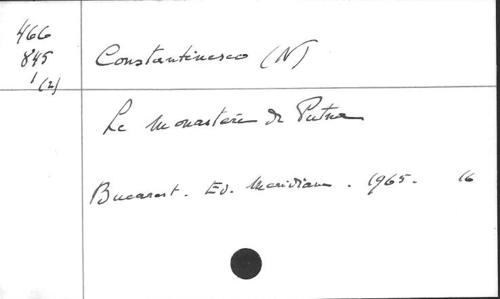 466
845
1 (2)
Constantinesco (N)
Le monastère de Putna
Bucarest. Ed. Meridiane. 1965. 16